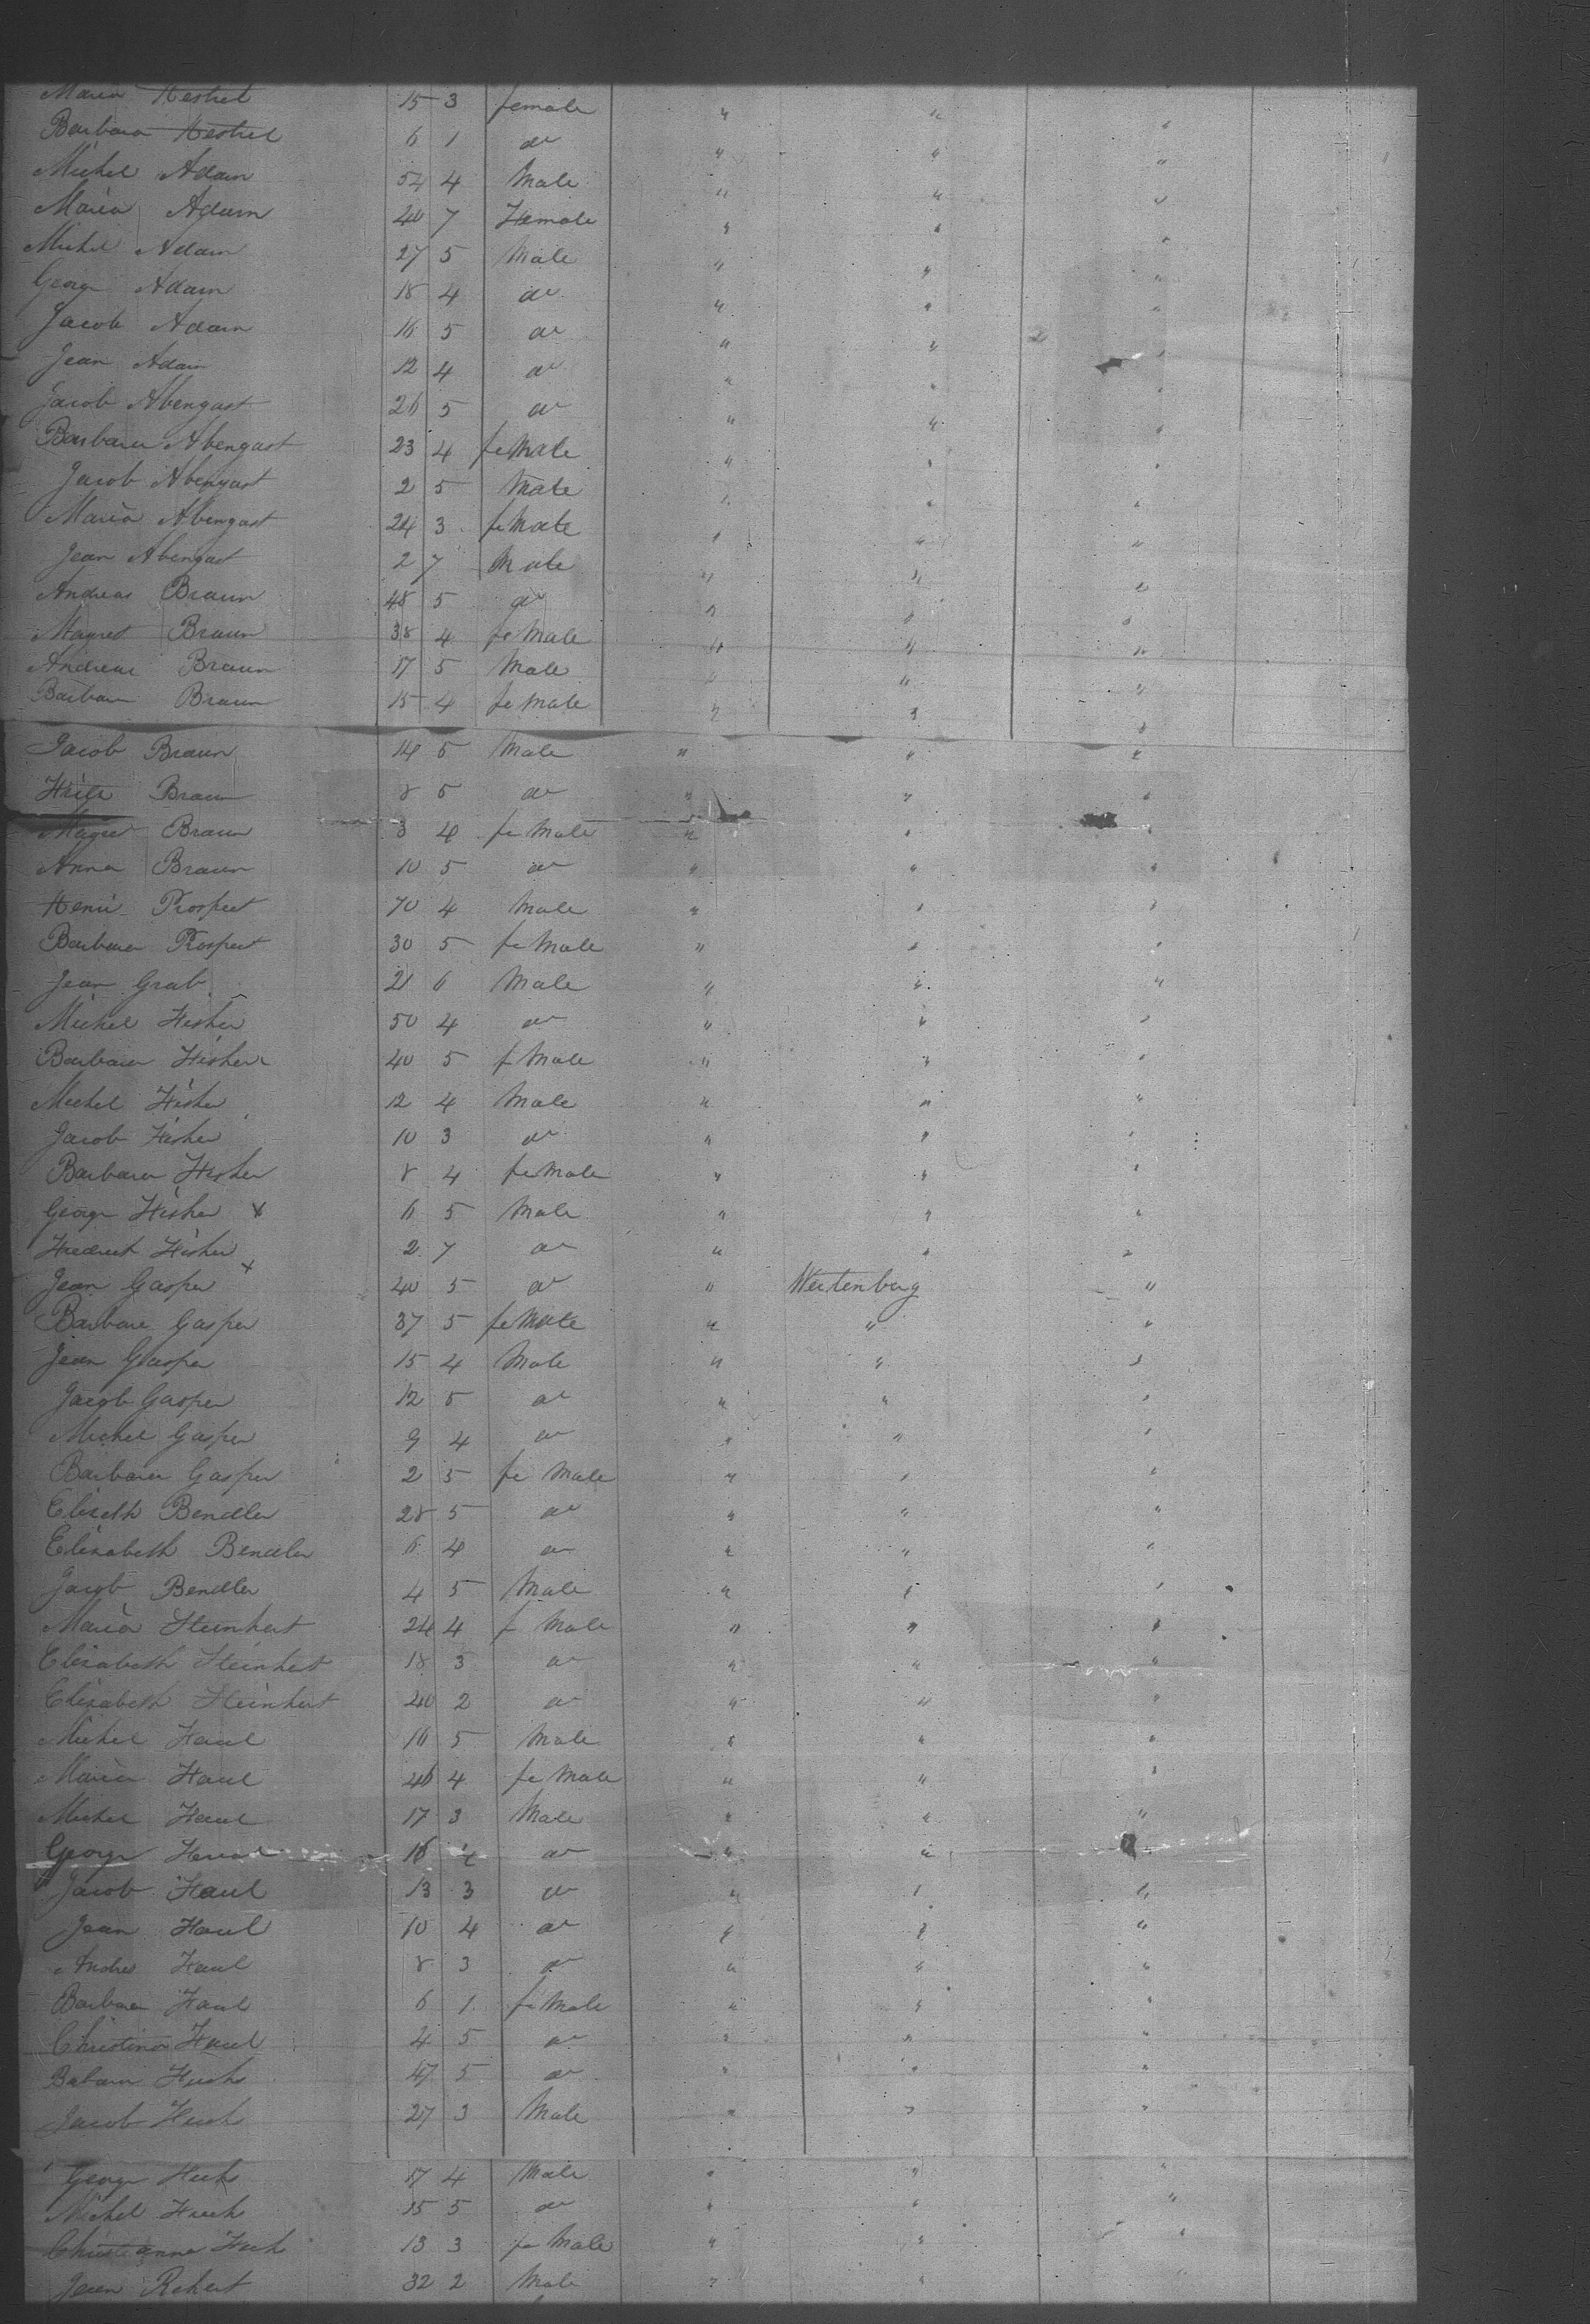 Maria Kestrel 15 3 female " " "
Barbara Kestrel 6 1 do " " "
Michel Adam 54 4 Male " " "
Maria Adam 40 7 Female " " "
Michel Adam 27 5 Male " " "
George Adam 18 4 do " " "
Jacob Adam 16 5 do " " "
Jean Adam 12 4 do " " "
Jacob Abengast 26 5 do " " "
Barbara Abengast 23 4 feMale " " "
Jacob Abengast 2 5 Male " " "
Maria Abengast 24 3 feMale " " "
Jean Abengast 2 7 Male " " "
Andreas Braun 48 5 do " " "
Magret Braun 38 4 feMale " " "
Andreas Braun 17 5 Male " " "
Barbara Braun 15 4 feMale " " "
Jacob Braun 14 5 Male " " "
Braun 8 5 do " " "
Magret Braun 3 4 feMale " " "
Anna Braun 10 5 do " " "
Henri Prospect 70 4 Male " " "
Barbara Prospect 30 5 feMale " " "
Jean Grab 21 6 Male " " "
Michel Fisher 50 4 do " " "
Barbara Fisher 40 5 f Male " " "
Michel Fisher 12 4 Male " " "
Jacob Fisher 10 3 do " " "
Barbara Fisher 8 4 feMale " " "
George Fisher x 6 5 Male " " "
Fredrick Fisher 2 7 do " " "
Jean Gasper x 40 5 do " Wertenberg "
Barbara Gasper 37 5 feMale " " "
Jean Gasper 15 4 Male " " "
Jacob Gasper 12 5 do " " "
Michel Gasper 9 4 do " " "
Barbara Gasper 2 5 fe Male " " "
Elizeth Bendler 28 5 do " " "
Elizabeth Bendler 6 4 do " " "
Jacob Bendler 4 5 Male " " "
Maria Steinhert 24 4 f Male " " "
Elizabeth Steinhert 18 3 do " " "
Elizabeth Steinhert 40 2 do " " "
Michel Haul 16 5 Male " " "
Maria Haul 46 4 fe Male " " "
Michel Haul 17 3 Male " " "
George 16 4 do " " "
Jacob Haul 13 3 do " " "
Jean Haul 10 4 do " " "
Andres Haul 8 3 do " " "
Barbara Haul 6 1 feMale " " "
Christina Haul 4 5 do " " "
Babara 47 5 do " " "
Jacob 27 3 Male " " "
George 17 4 Male " " "
Michel 15 5 do " " "
Christianna 13 3 fe Male " " "
Jean Rehert 32 2 Male " "